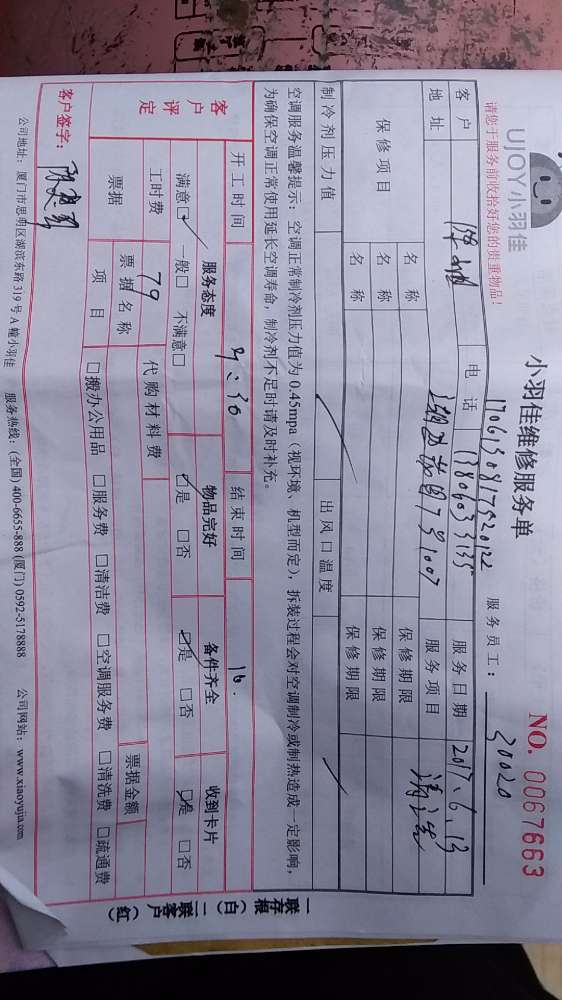 UJOY小羽佳
请您于服务前收拾好您的贵重物品！
小羽佳维修服务单
NO. 0067663
170613081752012
服务员工： 30020
客户 电话 服务日期 2017.6.13
地址 服务项目
保修项目 名称 保修期限
名称 保修期限
名称 保修期限
制冷剂压力值 出风口温度
空调服务温馨提示：空调正常制冷剂压力值为 0.45mpa（视环境、机型而定），拆装过程会对空调制冷或制热造成一定影响，
为确保空调正常使用延长空调寿命，制冷剂不足时请及时补充。
开工时间 结束时间 16.
客户评定 服务态度 物品完好 备件齐全 收到卡片
满意☑ 一般□ 不满意□ ☑是 □否 ☑是 □否 ☑是 □否
工时费 79 代购材料费
票据 票据名称 票据金额
项目 □搬办公用品 □服务费 □清洁费 □空调服务费 □清洗费 □疏通费
客户签字：
公司地址：厦门市思明区湖滨东路 319 号 A 幢小羽佳 服务热线：(全国) 400-6655-888 (厦门) 0592-5178888 公司网站：www.xiaoyujia.com
一联存根（白） 二联客户（红）